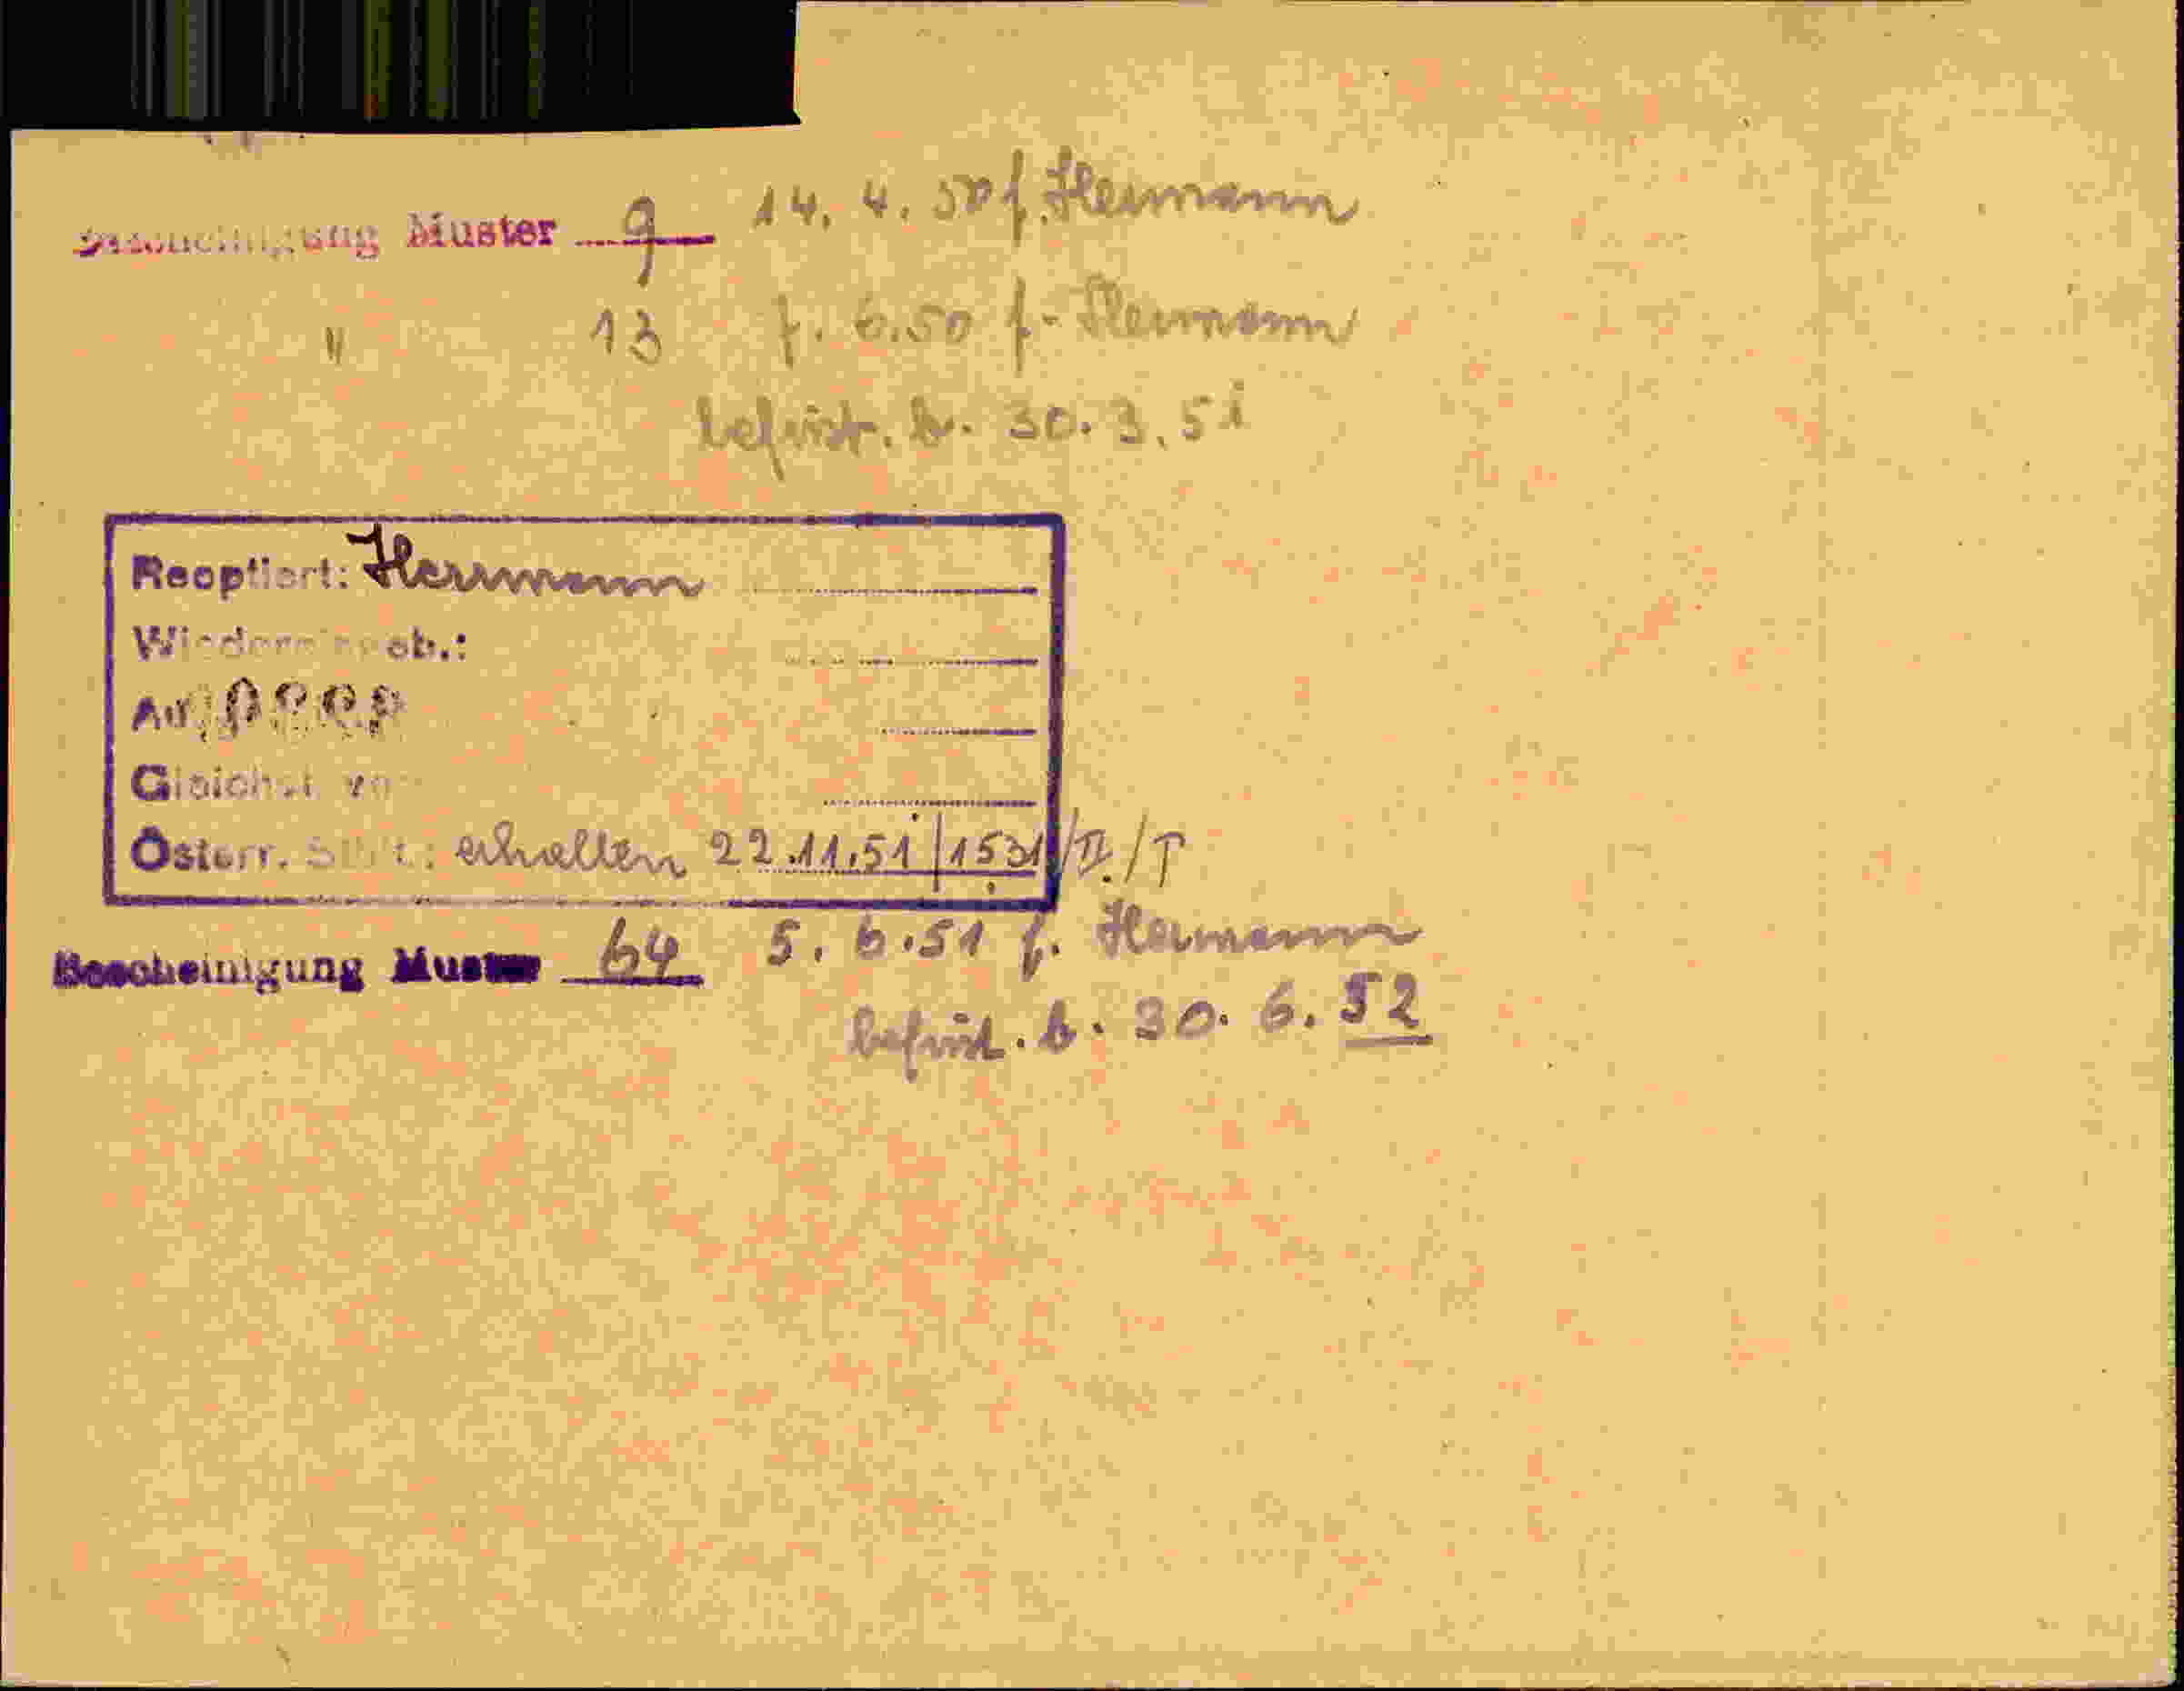 Bescheinigung Muster 9 14. 4. 50 f. Hermann
" 13 7. 6.50 f. Hermann
befrist. b. 30. 3. 51
Reoptiert: Herrmann
Wiedereingeb.:
Gleichst. v
Österr. Stb. : erhalten 22.11.51 / 1531 / II. / T
Bescheinigung Muster 64 5. 6.51 f. Hermann
befrist. b. 30. 6. 52